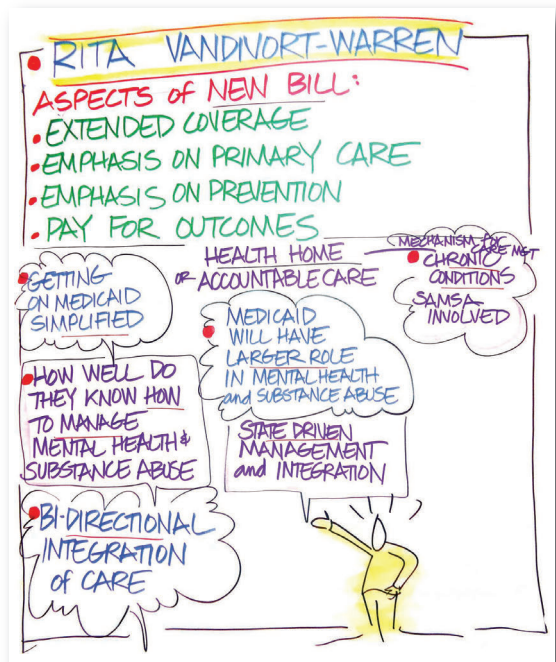 • RITA VANDIVORT-WARREN
ASPECTS of NEW BILL:
• EXTENDED COVERAGE
• EMPHASIS ON PRIMARY CARE
• EMPHASIS ON PREVENTION
• PAY FOR OUTCOMES
HEALTH HOME
or ACCOUNTABLE CARE
MECHANISM for
CARE MGT
• CHRONIC
CONDITIONS
SAMSA
INVOLVED
• GETTING
ON MEDICAID
SIMPLIFIED
• MEDICAID
WILL HAVE
LARGER ROLE
IN MENTAL HEALTH
and SUBSTANCE ABUSE
• HOW WELL DO
THEY KNOW HOW
TO MANAGE
MENTAL HEALTH &
SUBSTANCE ABUSE
STATE DRIVEN
MANAGEMENT
and INTEGRATION
• BI-DIRECTIONAL
INTEGRATION
of CARE